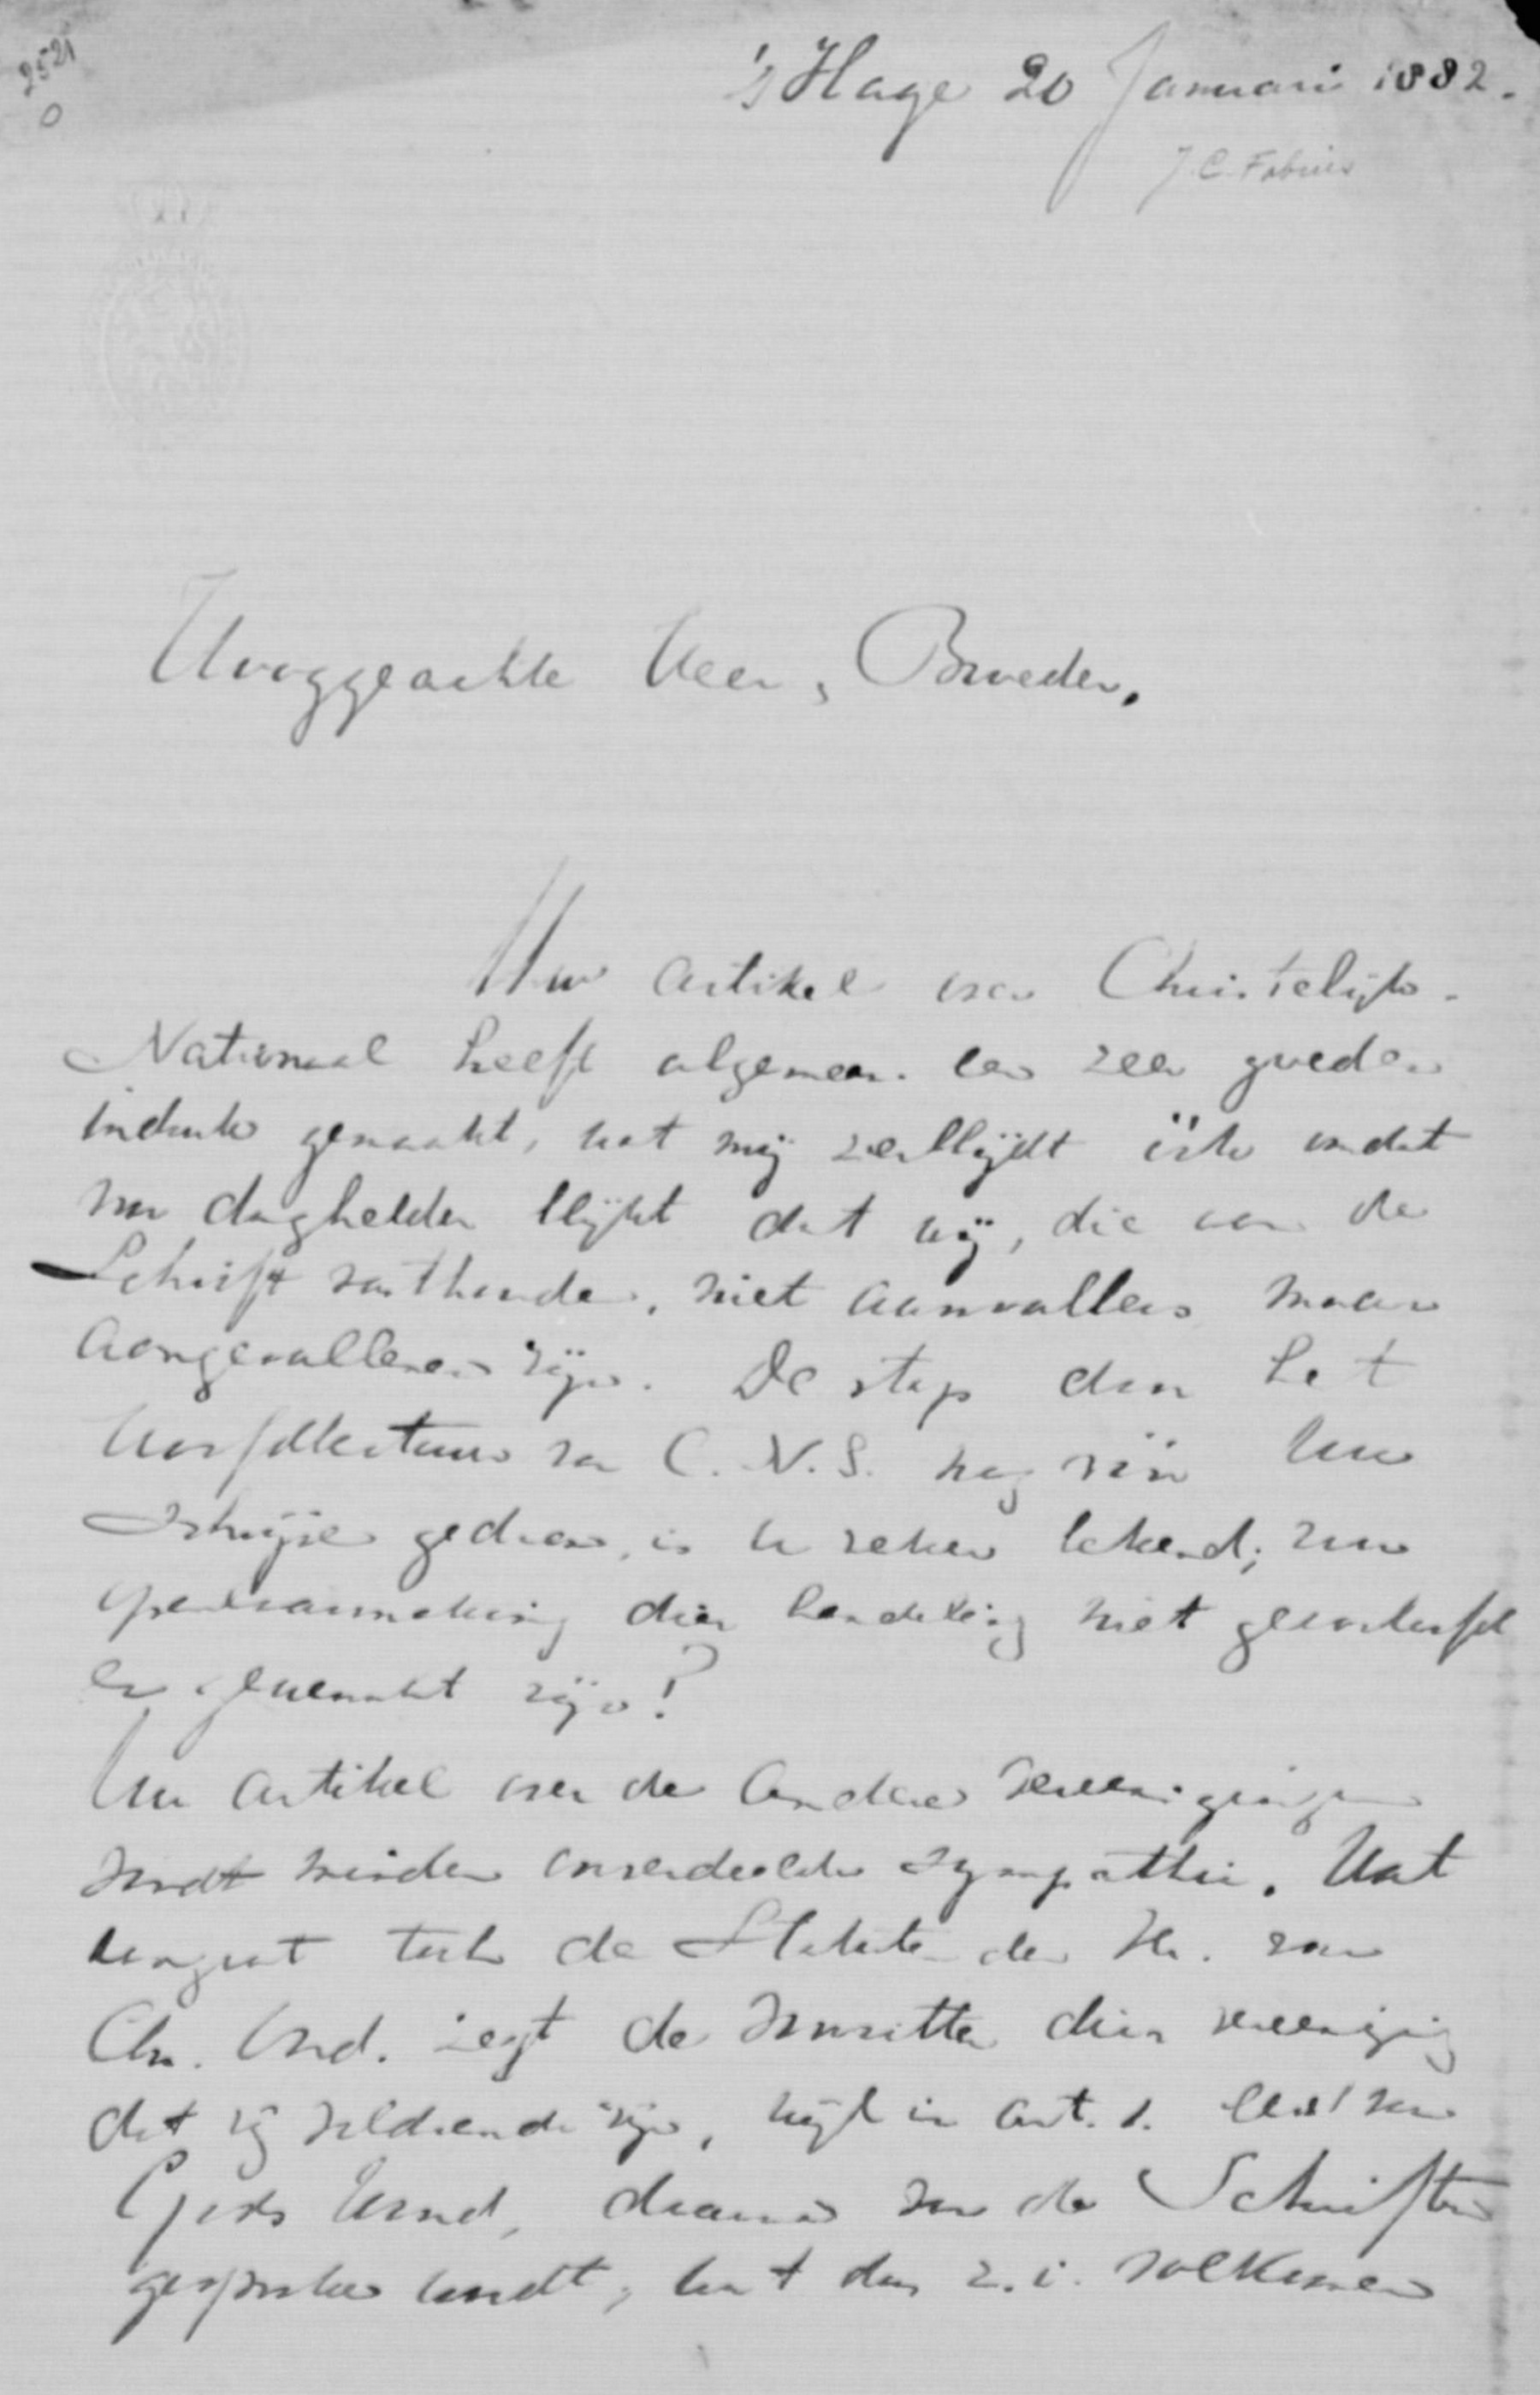 2521
0
's Hage 20 Januari 1882.
J. C. Fabius
Hooggeachte Heer, Broeder,
Uw artikel over Christelijk-
Nationaal heeft algemeen een zeer goeden
indruk gemaakt, wat mij verblijdt ook omdat
nu daghelder blijkt dat wij, die aan de
Schrift vasthouden, niet aanvallers maar
aangevallenen zijn. De stap door het
Hoofdbestuur van C. N. S. bij Uw
gedaan, is U zeker bekend; zou
openbaarmaking dier handeling niet geoorloofd
en gewenscht zijn?
Uw artikel over de andere vereenigingen
vindt minder onverdeelde sympathie. Wat
aangaat toch de Statuten der Ver. voor
Chr. Ond. zegt de voorzitter dier vereeniging
dat zij voldoende zijn, wijl in art. 1. van
Gods Woord, daarna van de Schriften
gesproken wordt, wat dus z. i. volkomen